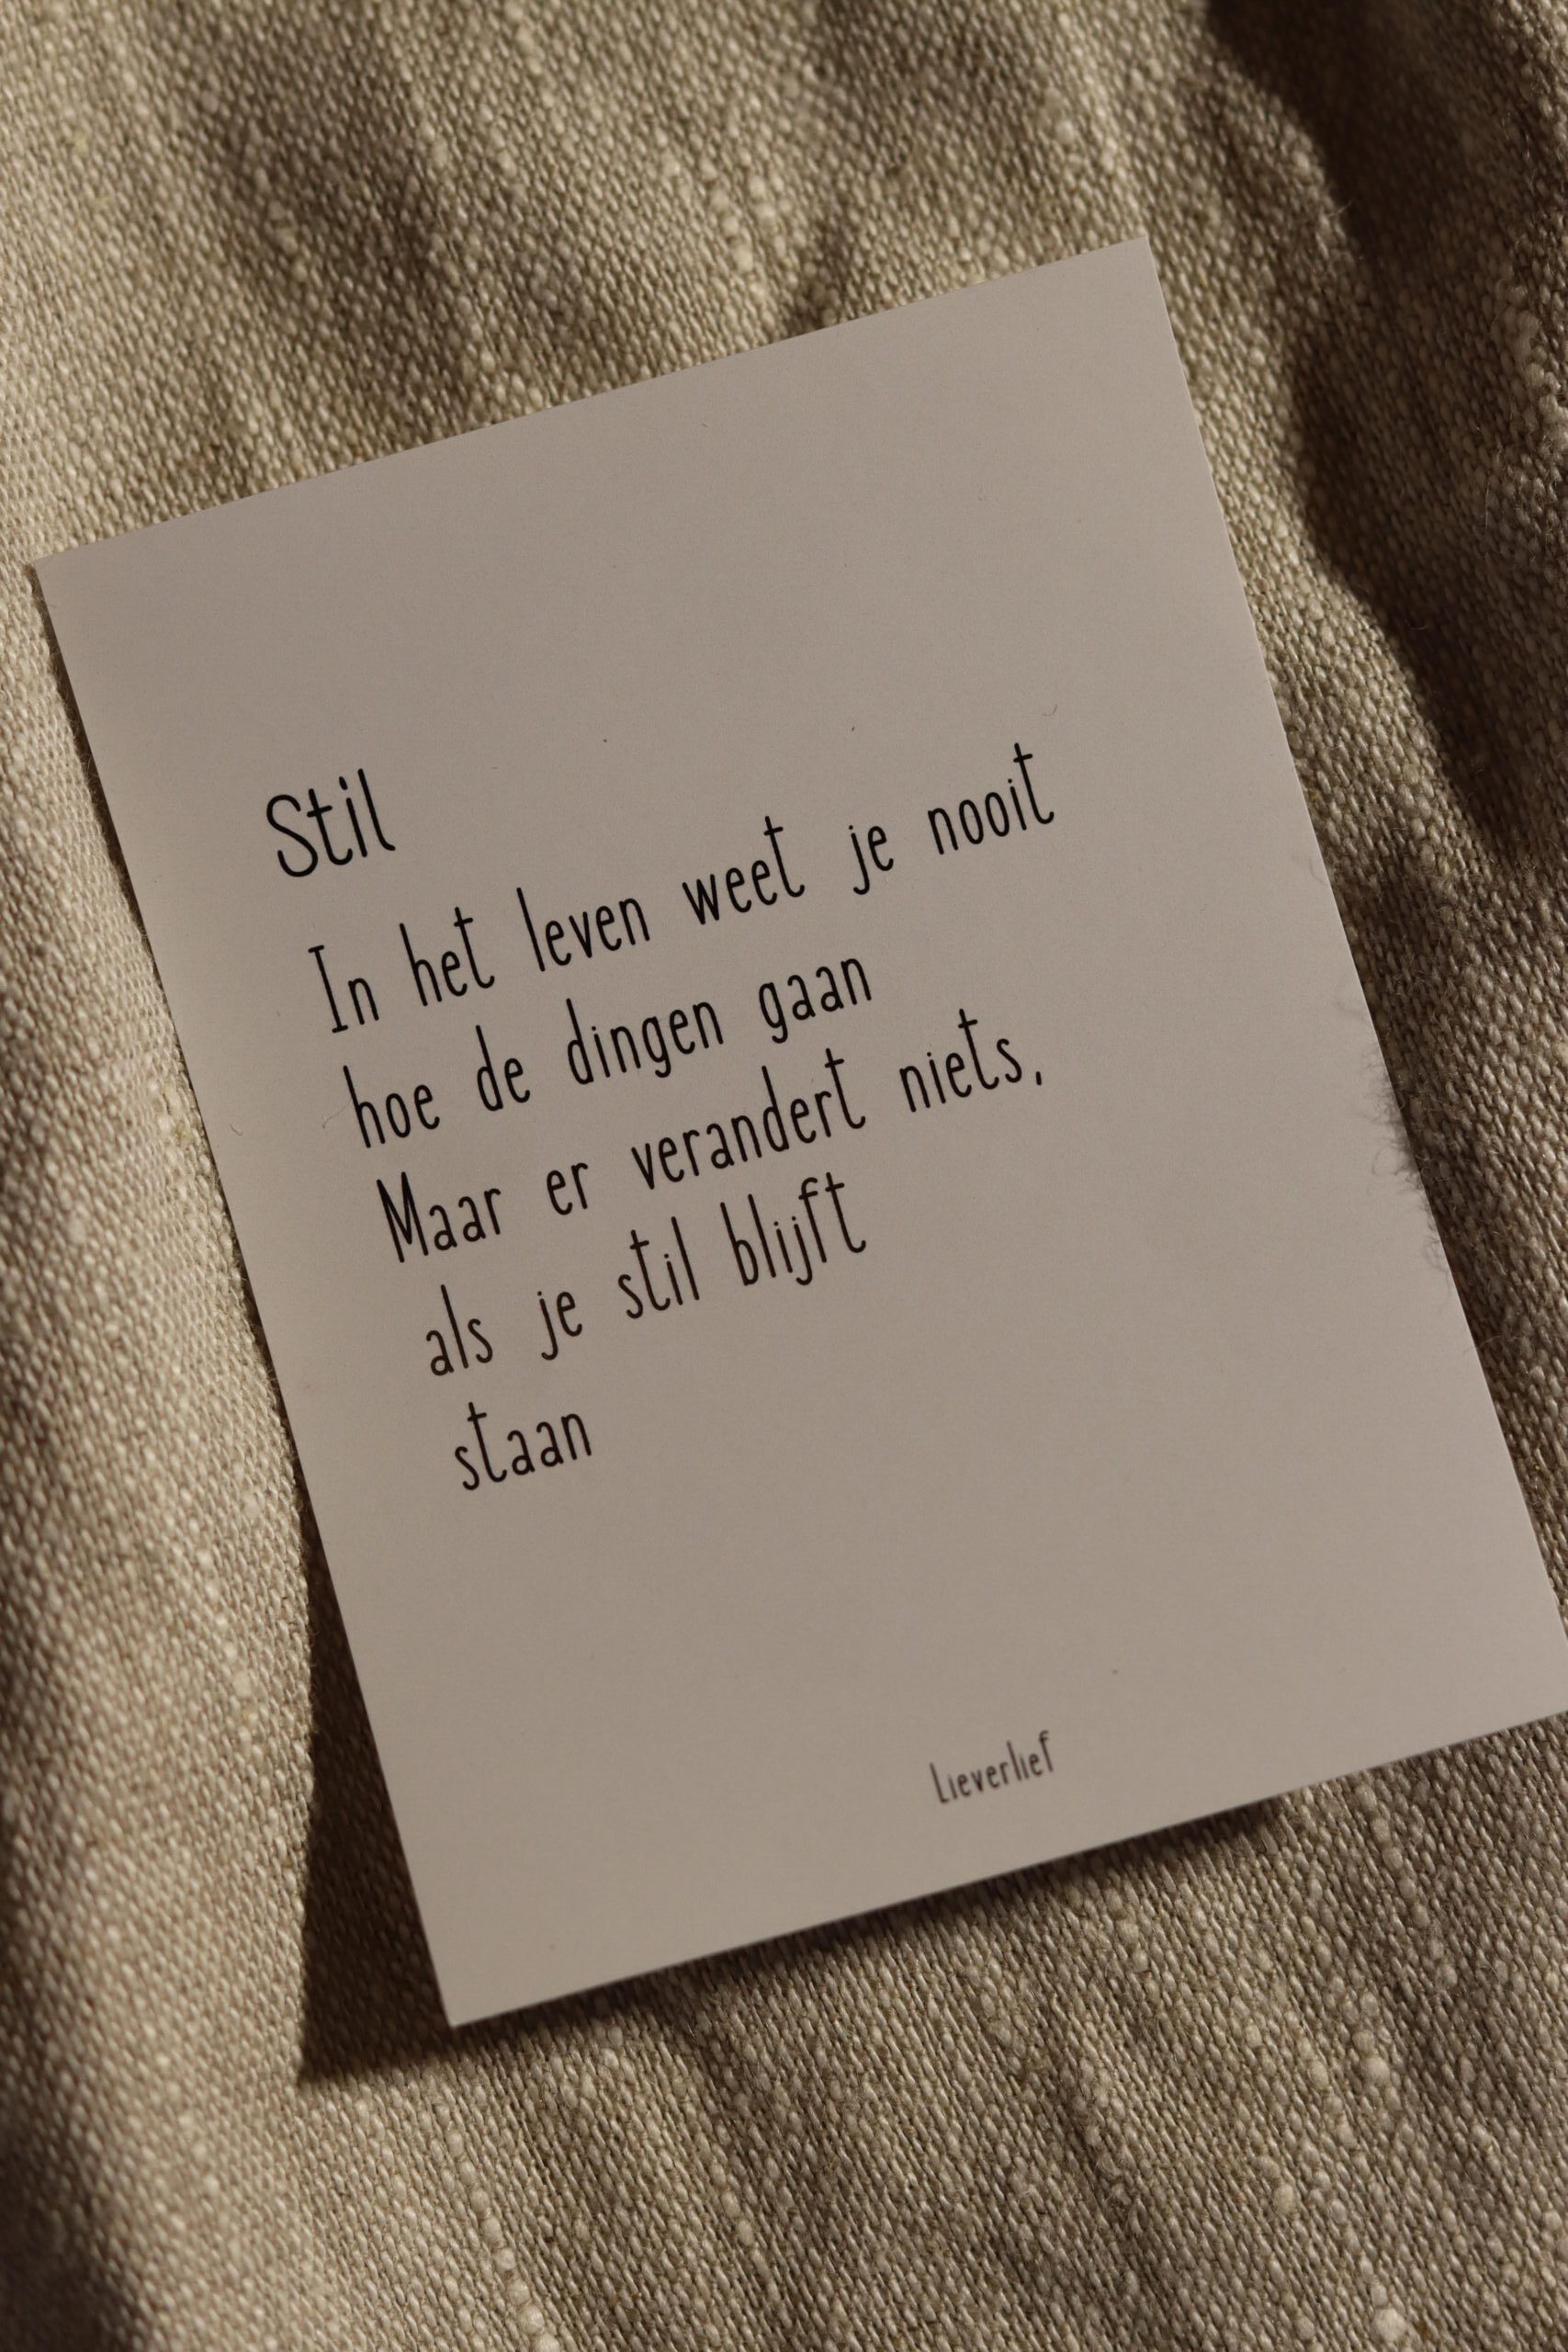 Stil
In het leven weet je nooit
hoe de dingen gaan
Maar er verandert niets,
als je stil blijft
staan
Lieverlief